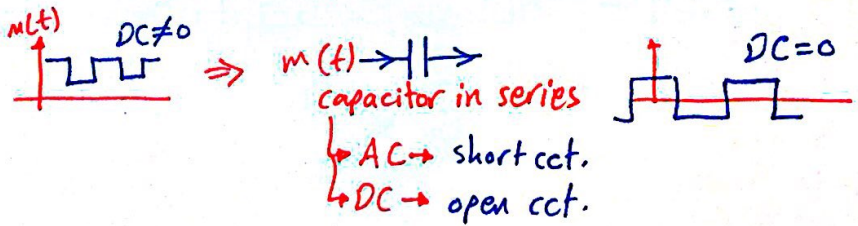 m(t)
DC≠0
⇒ m(t)
DC=0
capacitor in series
AC → short cct.
DC → open cct.